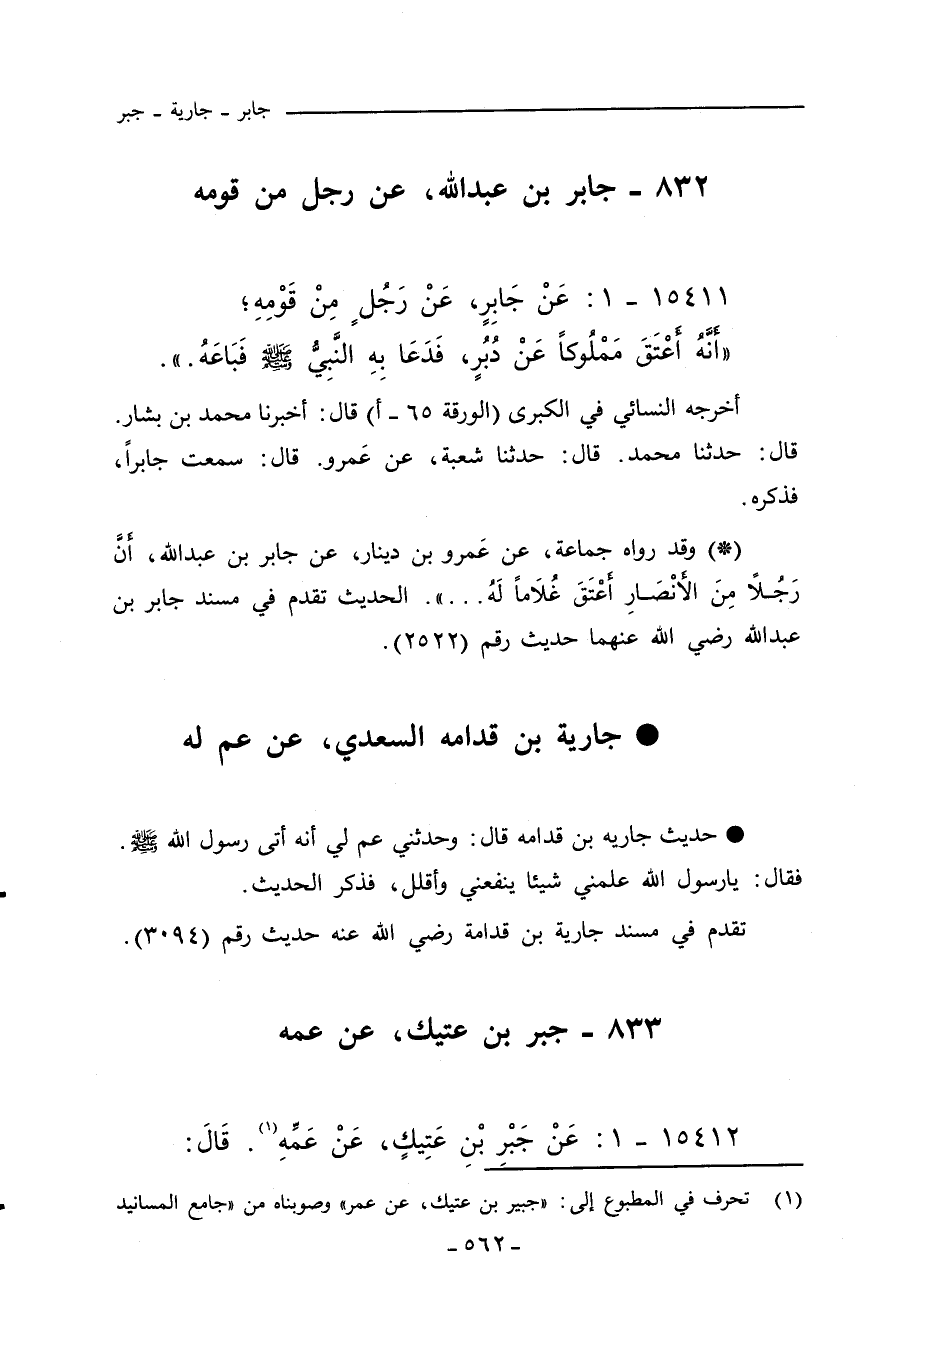 جابر - جارية - جبر
٨٣٢ - جابر بن عبدالله، عن رجل من قومه
١٥٤١١ - ١: عَنْ جَابِرٍ، عَنْ رَجُلٍ مِنْ قَوْمِهِ؛
«أَنَّهُ أَعْتَقَ مَمْلُوكاً عَنْ دُبُرٍ، فَدَعَا بِهِ النَّبِيُّ ﷺ فَبَاعَهُ.».
أخرجه النسائي في الكبرى (الورقة ٦٥ - أ) قال: أخبرنا محمد بن بشار.
قال: حدثنا محمد. قال: حدثنا شعبة، عن عَمرو. قال: سمعت جابراً،
فذكره.
(*) وقد رواه جماعة، عن عَمرو بن دينار، عن جابر بن عبدالله، أَنَّ
رَجُلاً مِنَ الأَنْصَارِ أَعْتَقَ غُلَاماً لَهُ...». الحديث تقدم في مسند جابر بن
عبدالله رضي الله عنهما حديث رقم (٢٥٢٢).
● جارية بن قدامه السعدي، عن عم له
● حديث جاريه بن قدامه قال: وحدثني عم لي أنه أتى رسول الله ﷺ.
فقال: يارسول الله علمني شيئا ينفعني وأقلل، فذكر الحديث.
تقدم في مسند جارية بن قدامة رضي الله عنه حديث رقم (٣٠٩٤).
٨٣٣ - جبر بن عتيك، عن عمه
١٥٤١٢ - ١: عَنْ جَبْرِ بْنِ عَتِيكٍ، عَنْ عَمِّهِ(١). قَالَ:
(١) تحرف في المطبوع إلى: «جبير بن عتيك، عن عمر» وصوبناه من «جامع المسانيد
- ٥٦٢ -